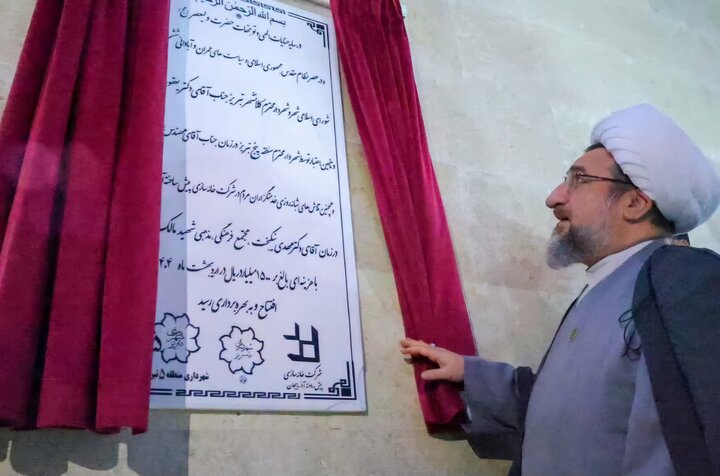 بسم الله الرحمن الرحیم
در سایه عنایات الهی و توجهات حضرت ولیعصر (عج)
و در عصر نظام مقدس جمهوری اسلامی و سیاست های عمران و آبادانی
شورای اسلامی شهر و شهردار محترم کلانشهر تبریز جناب آقای دکتر یعقوب
و تامین اعتبار توسط شهردار محترم منطقه پنج تبریز در زمان جناب آقای مهندس
و همچنین تلاش های شبانه روزی خدمتگزاران مردم در شرکت خانه سازی پیش ساخته
در زمان آقای دکتر مهدی مجتمع فرهنگی، مذهبی شهید مالک
با هزینه ای بالغ بر ۱۵۰۰ میلیارد ریال در اردیبهشت ماه ۴۰۴
افتتاح و به بهره برداری رسید
شهرداری منطقه ۵
شهرداری تبریز
شرکت خانه سازی
پیش ساخته آذربایجان